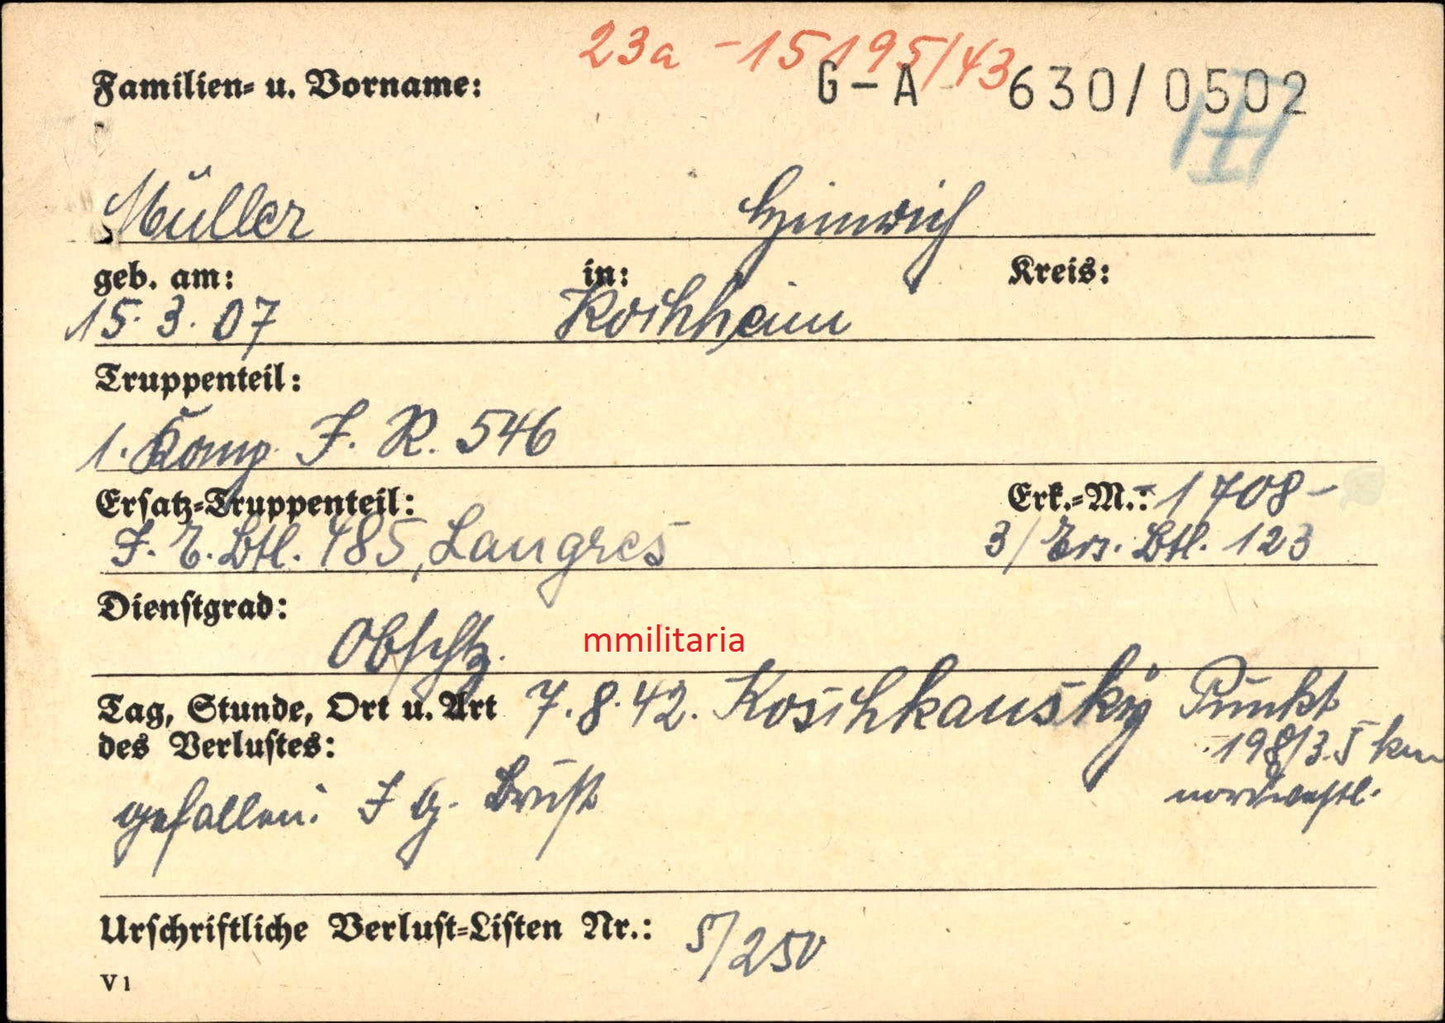 23a - 15195/43
Familien- u. Vorname: G-A 630/0502
Müller Heinrich
geb. am: in: Kreis:
15.3.07 Kochheim
Truppenteil:
1. Komp. J. R. 546
Ersatz-Truppenteil: Erk.-M.: -1708-
J. E. Btl. 485, Langres 3/Ers. Btl. 123
Dienstgrad:
Obschtz.
mmilitaria
Tag, Stunde, Ort u. Art 7.8.42. Koschkansky Punkt
des Verlustes: 198/3.5 km
nordwestl.
gefallen: J G. Brust
Urschriftliche Verlust-Listen Nr.: 5/250
V1